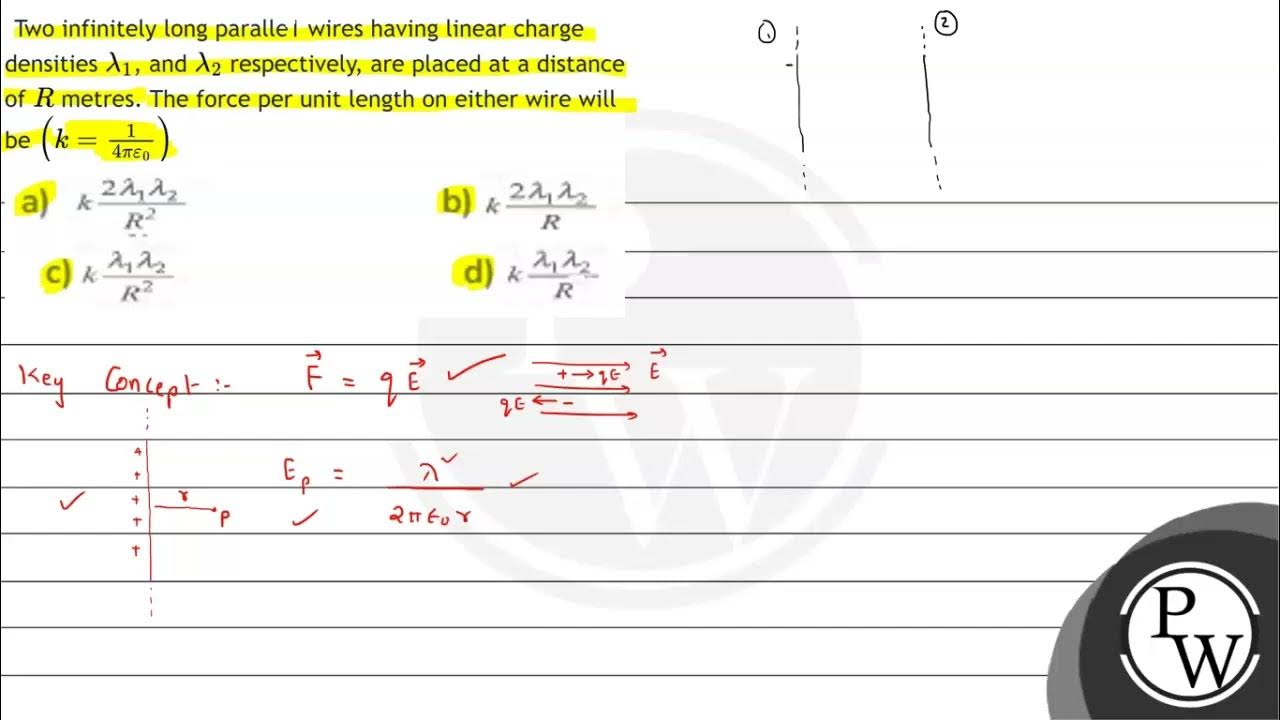 Two infinitely long parallel wires having linear charge
densities λ₁, and λ₂ respectively, are placed at a distance
of R metres. The force per unit length on either wire will
be (k = 1/4πε₀)
a) k 2λ₁λ₂/R²
b) k 2λ₁λ₂/R
c) k λ₁λ₂/R²
d) k λ₁λ₂/R
① ②
Key Concept :- F⃗ = qE⃗ ✓ + → qE E⃗
qE ← -
+
+
+ r
+ P
+
E_p = λ/2πε₀r
P
W